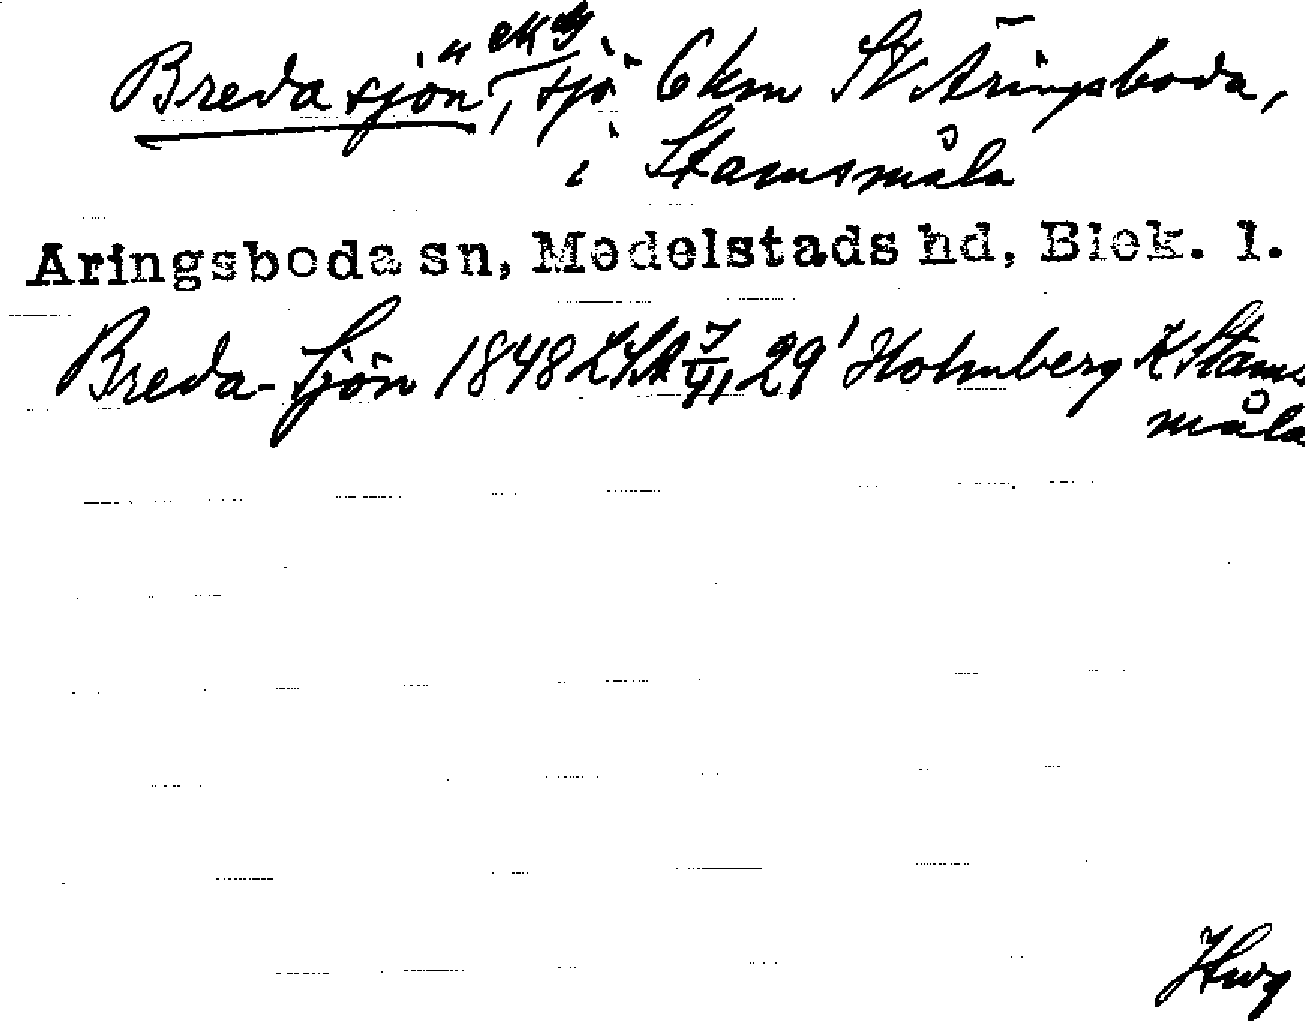 Bredasjön, ekg, sjö 6 km SV Äringsboda,
i Stamsmåla
Aringsboda sn, Medelstads hd, Blek. l.
Breda-Sjön 1848 LSA 29 Holmberg K Stams
måla